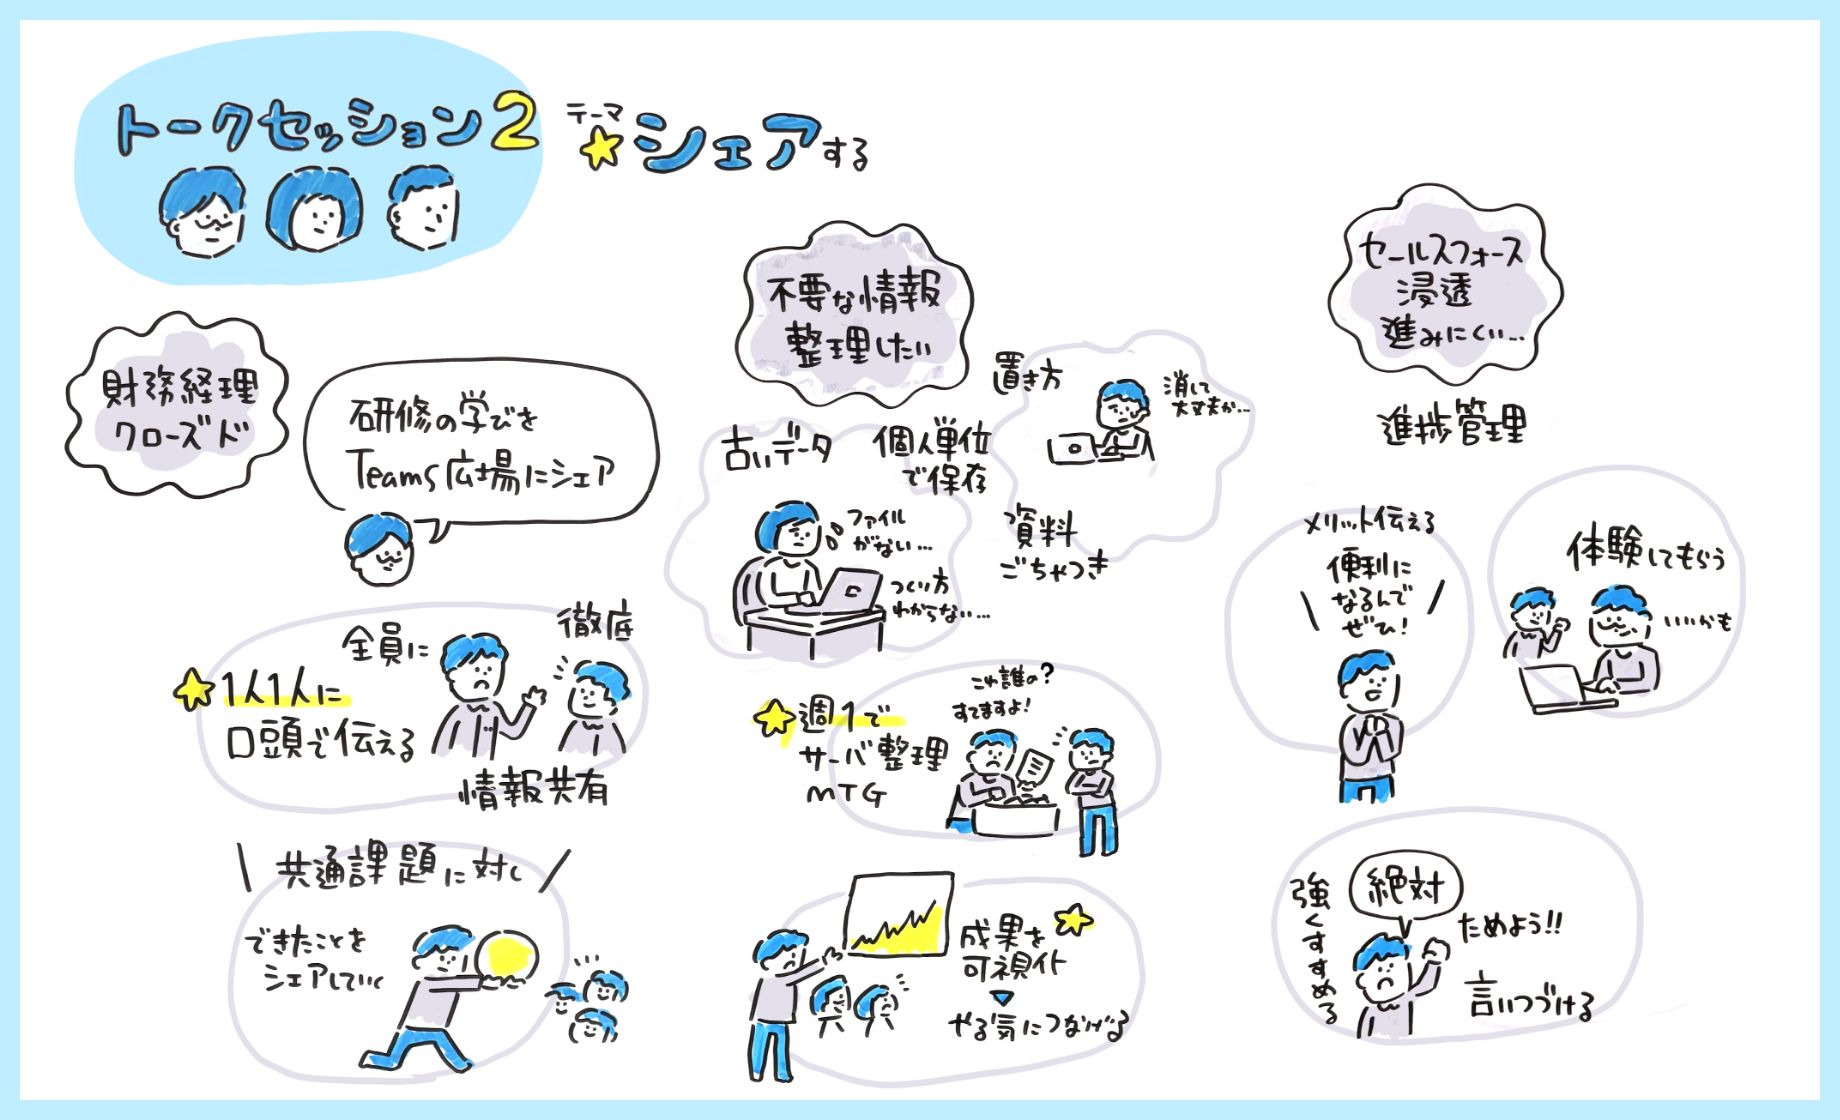 トークセッション2
テーマ
シェアする
財務経理
クローズド
研修の学びを
Teams広場にシェア
全員に
徹底
1人1人に
口頭で伝える
情報共有
共通課題に対し
できたことを
シェアしていく
不要な情報
整理したい
置き方
消して
大丈夫か…
古いデータ
個人単位
で保存
ファイル
がない…
つくり方
わからない…
資料
ごちゃつき
これ誰の?
すてますよ!
週1で
サーバ整理
MTG
成果を
可視化
やる気につなげる
セールスフォース
浸透
進みにくい…
進捗管理
メリット伝える
便利に
なるんで
ぜひ!
体験してもらう
いいかも
強くすすめる
絶対
ためよう!!
言いつづける